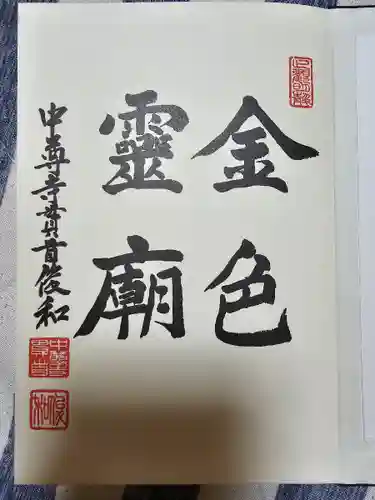 金色
靈廟
中尊寺貫首俊和
中尊寺
俊和